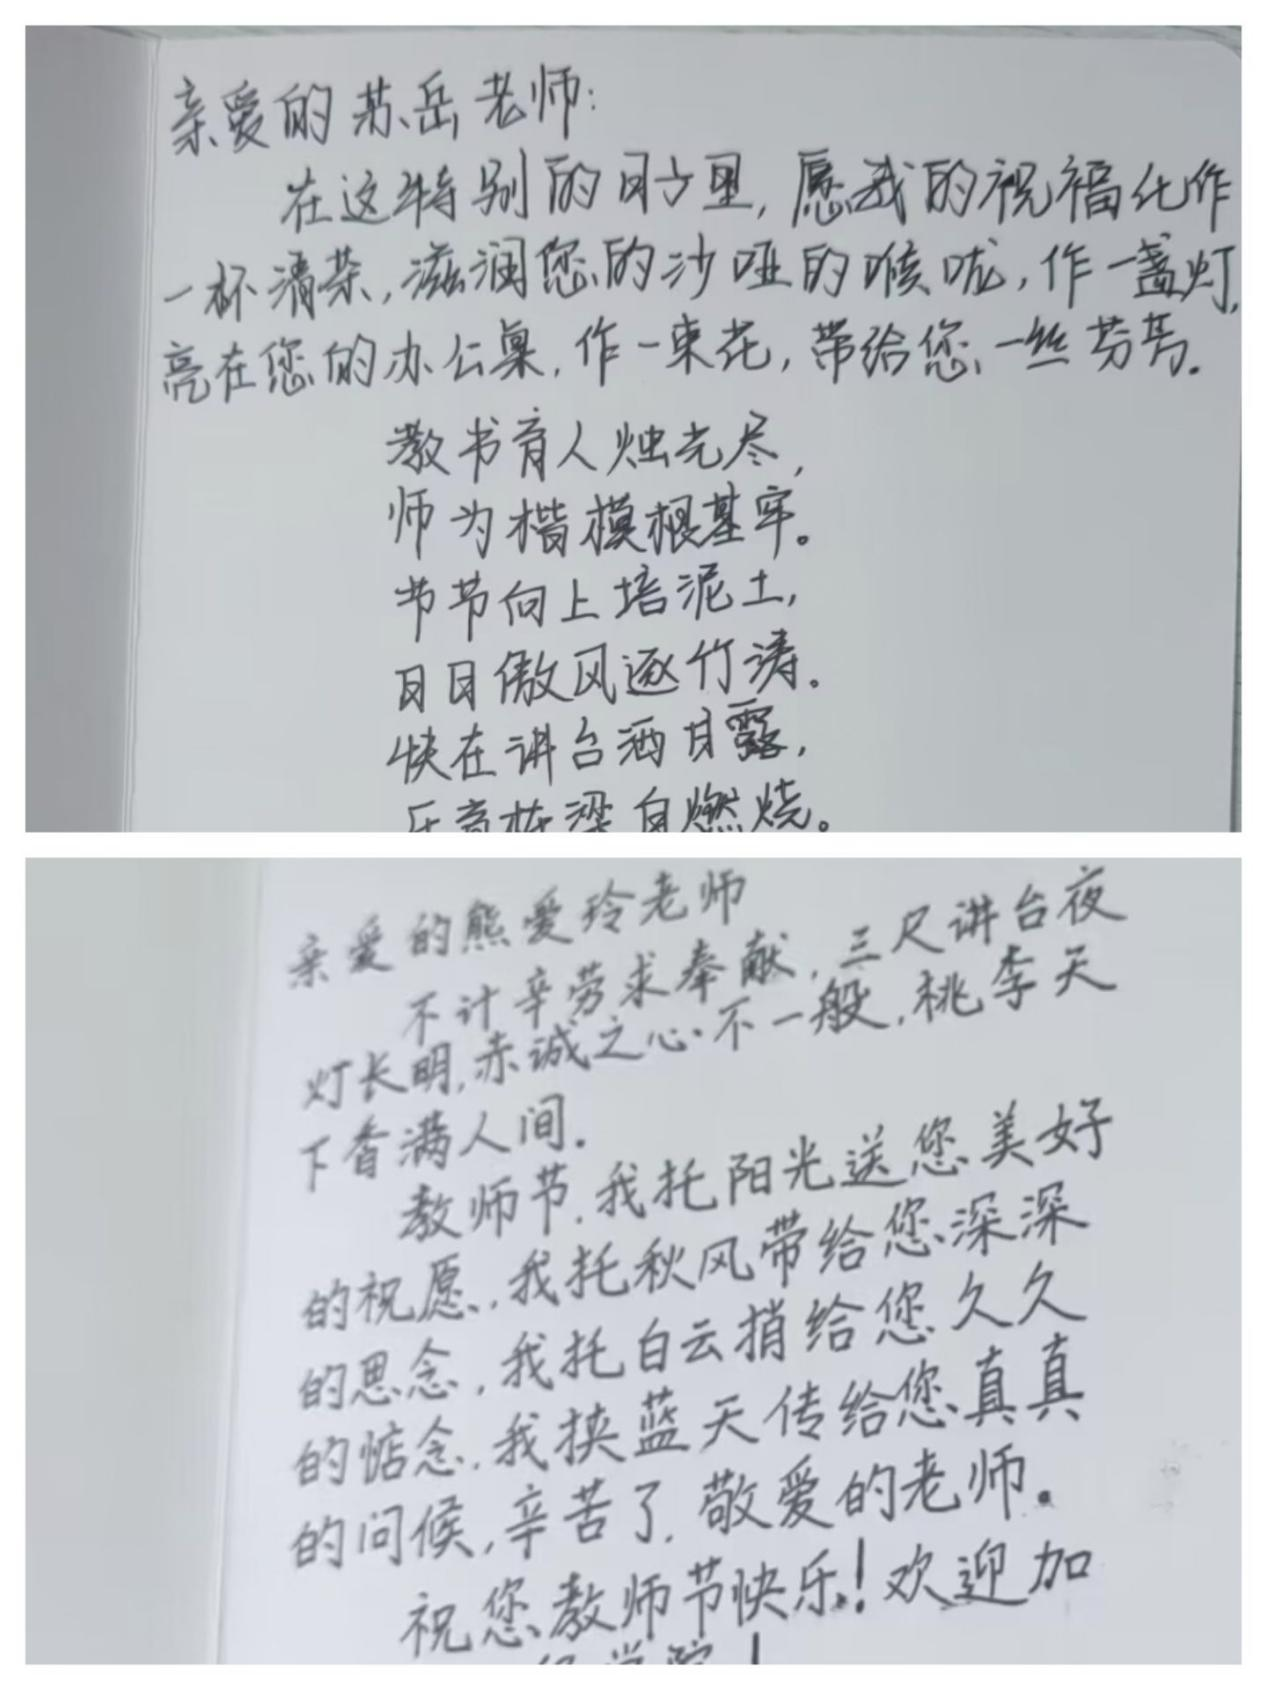 亲爱的苏岳老师:
在这特别的日子里,愿我的祝福化作
一杯清茶,滋润您的沙哑的喉咙,作一盏灯,
亮在您的办公桌,作一束花,带给您一丝芬芳.
教书育人烛光尽,
师为楷模根基牢。
节节向上培泥土,
日日傲风逐竹涛。
快在讲台洒甘露,
乐育栋梁自燃烧。
亲爱的熊爱玲老师
不计辛劳求奉献,三尺讲台夜
灯长明,赤诚之心不一般,桃李天
下香满人间.
教师节,我托阳光送您美好
的祝愿,我托秋风带给您深深
的思念,我托白云捎给您久久
的惦念,我挟蓝天传给您真真
的问候,辛苦了,敬爱的老师.
祝您教师节快乐!欢迎加
学院!